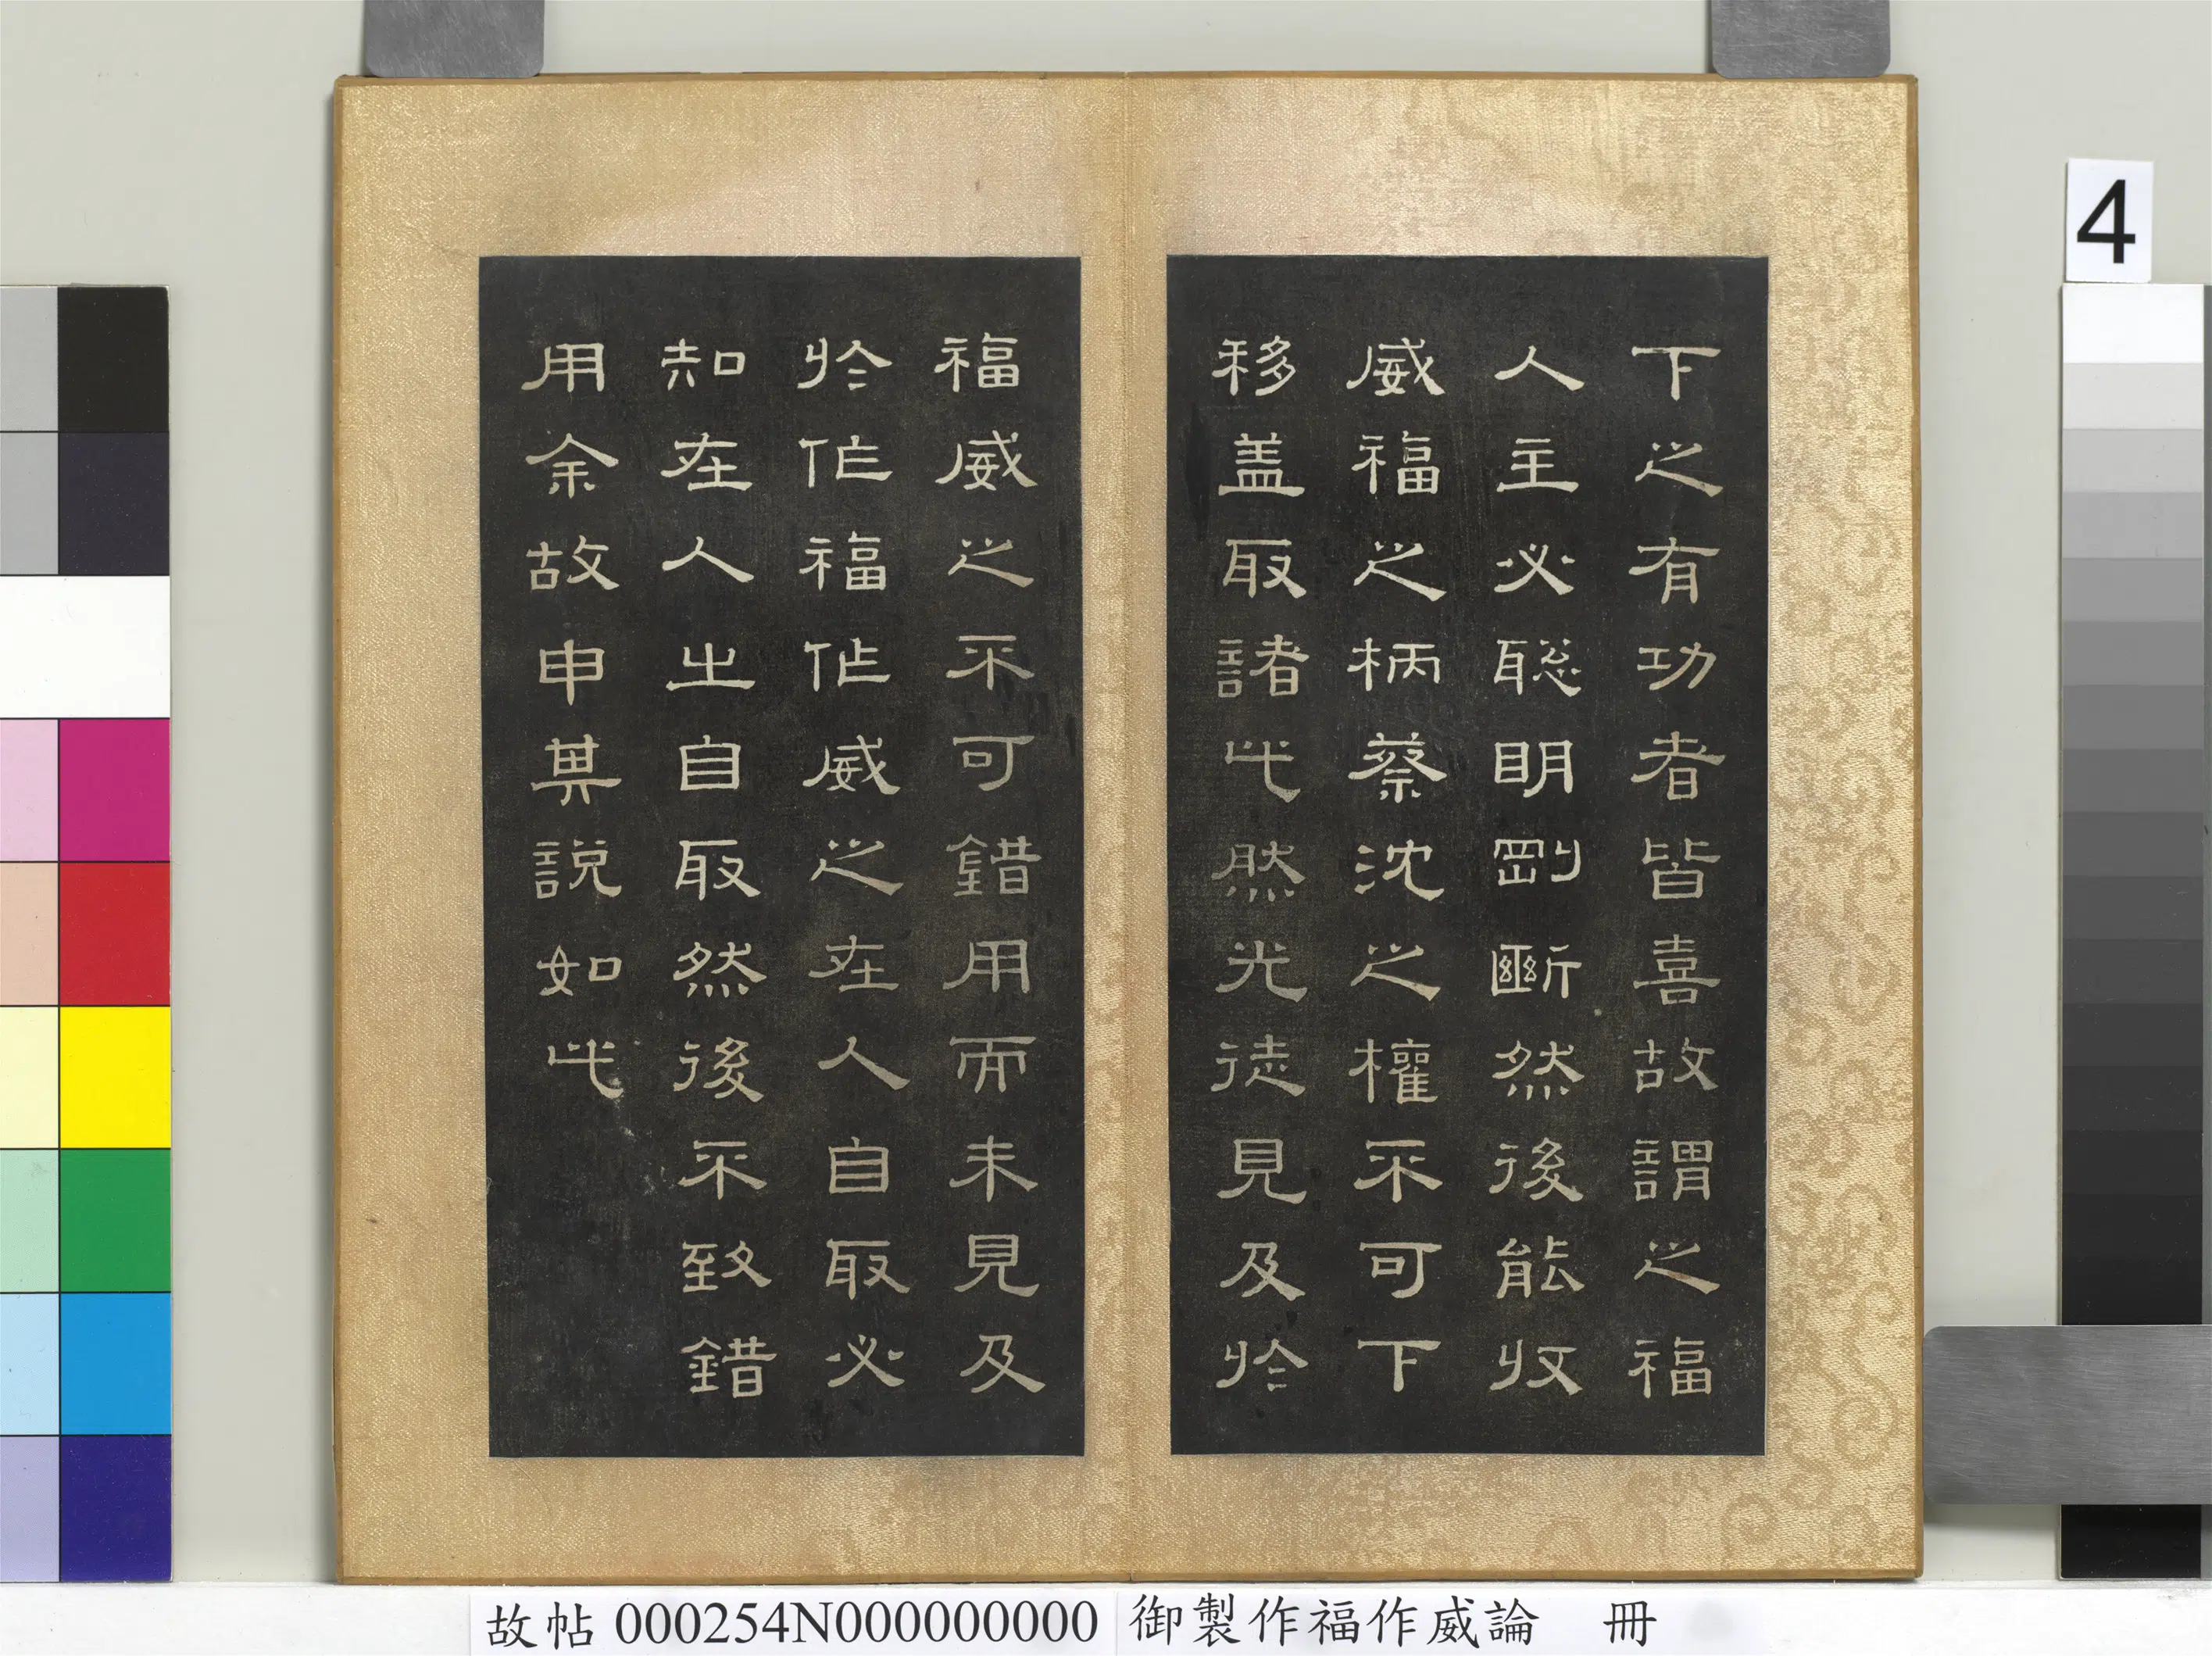 下之有功者皆喜故謂之福
人主必聡明剛斷然後能收
威福之柄蔡沈之權不可下
移盖取諸此然光徒見及於
福威之不可錯用而未見及
於作福作威之在人自取必
知在人之自取然後不致錯
用余故申其說如此
4
故帖 000254N000000000 御製作福作威論 冊